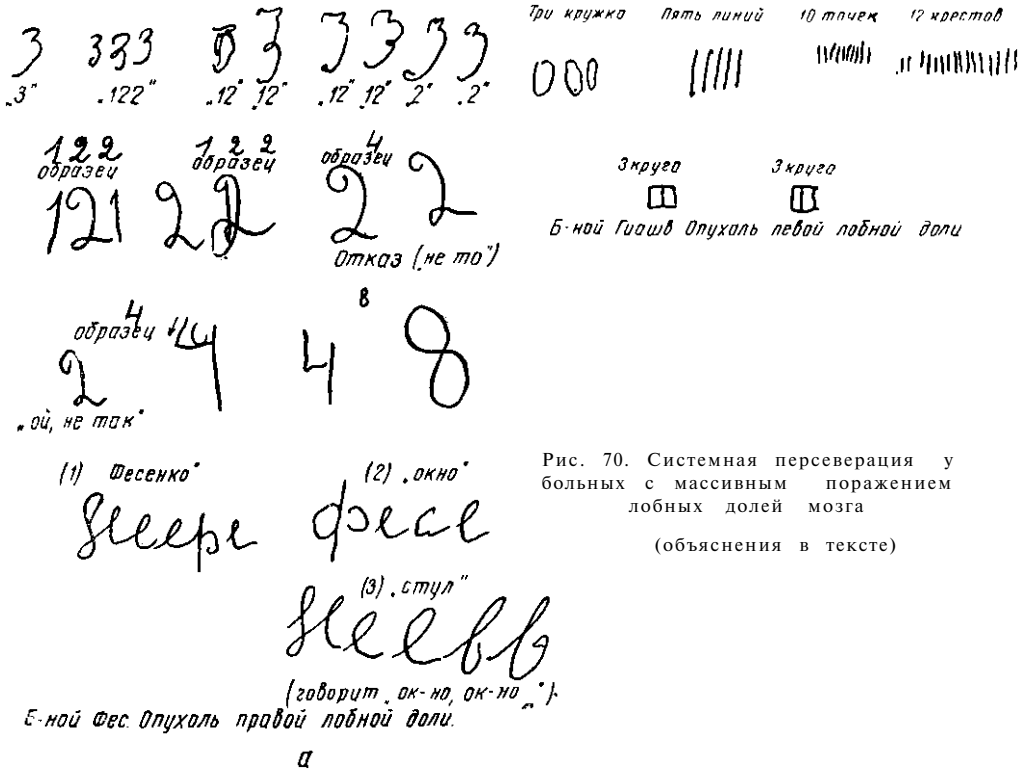 3 333 3 3 3 3 3 3
„3" „122" „12" „12" „12" „12" „2" „2"
1 2 2 1 2 2 4
образец образец образец
121 2 2 2 2
Отказ („не то")
4 8
образец 4 4 8
2
„ой, не так"
(1) Фесенко" (2) „окно"
фесе
(3) „стул"
(говорит „ок-но, ок-но„")
Б-ной Фес. Опухоль правой лобной доли.
а
Три кружка Пять линий 10 точек 12 крестов
3 круга 3 круга
Б-ной Гиашв Опухоль левой лобной доли
Рис. 70. Системная персеверация у
больных с массивным поражением
лобных долей мозга
(объяснения в тексте)